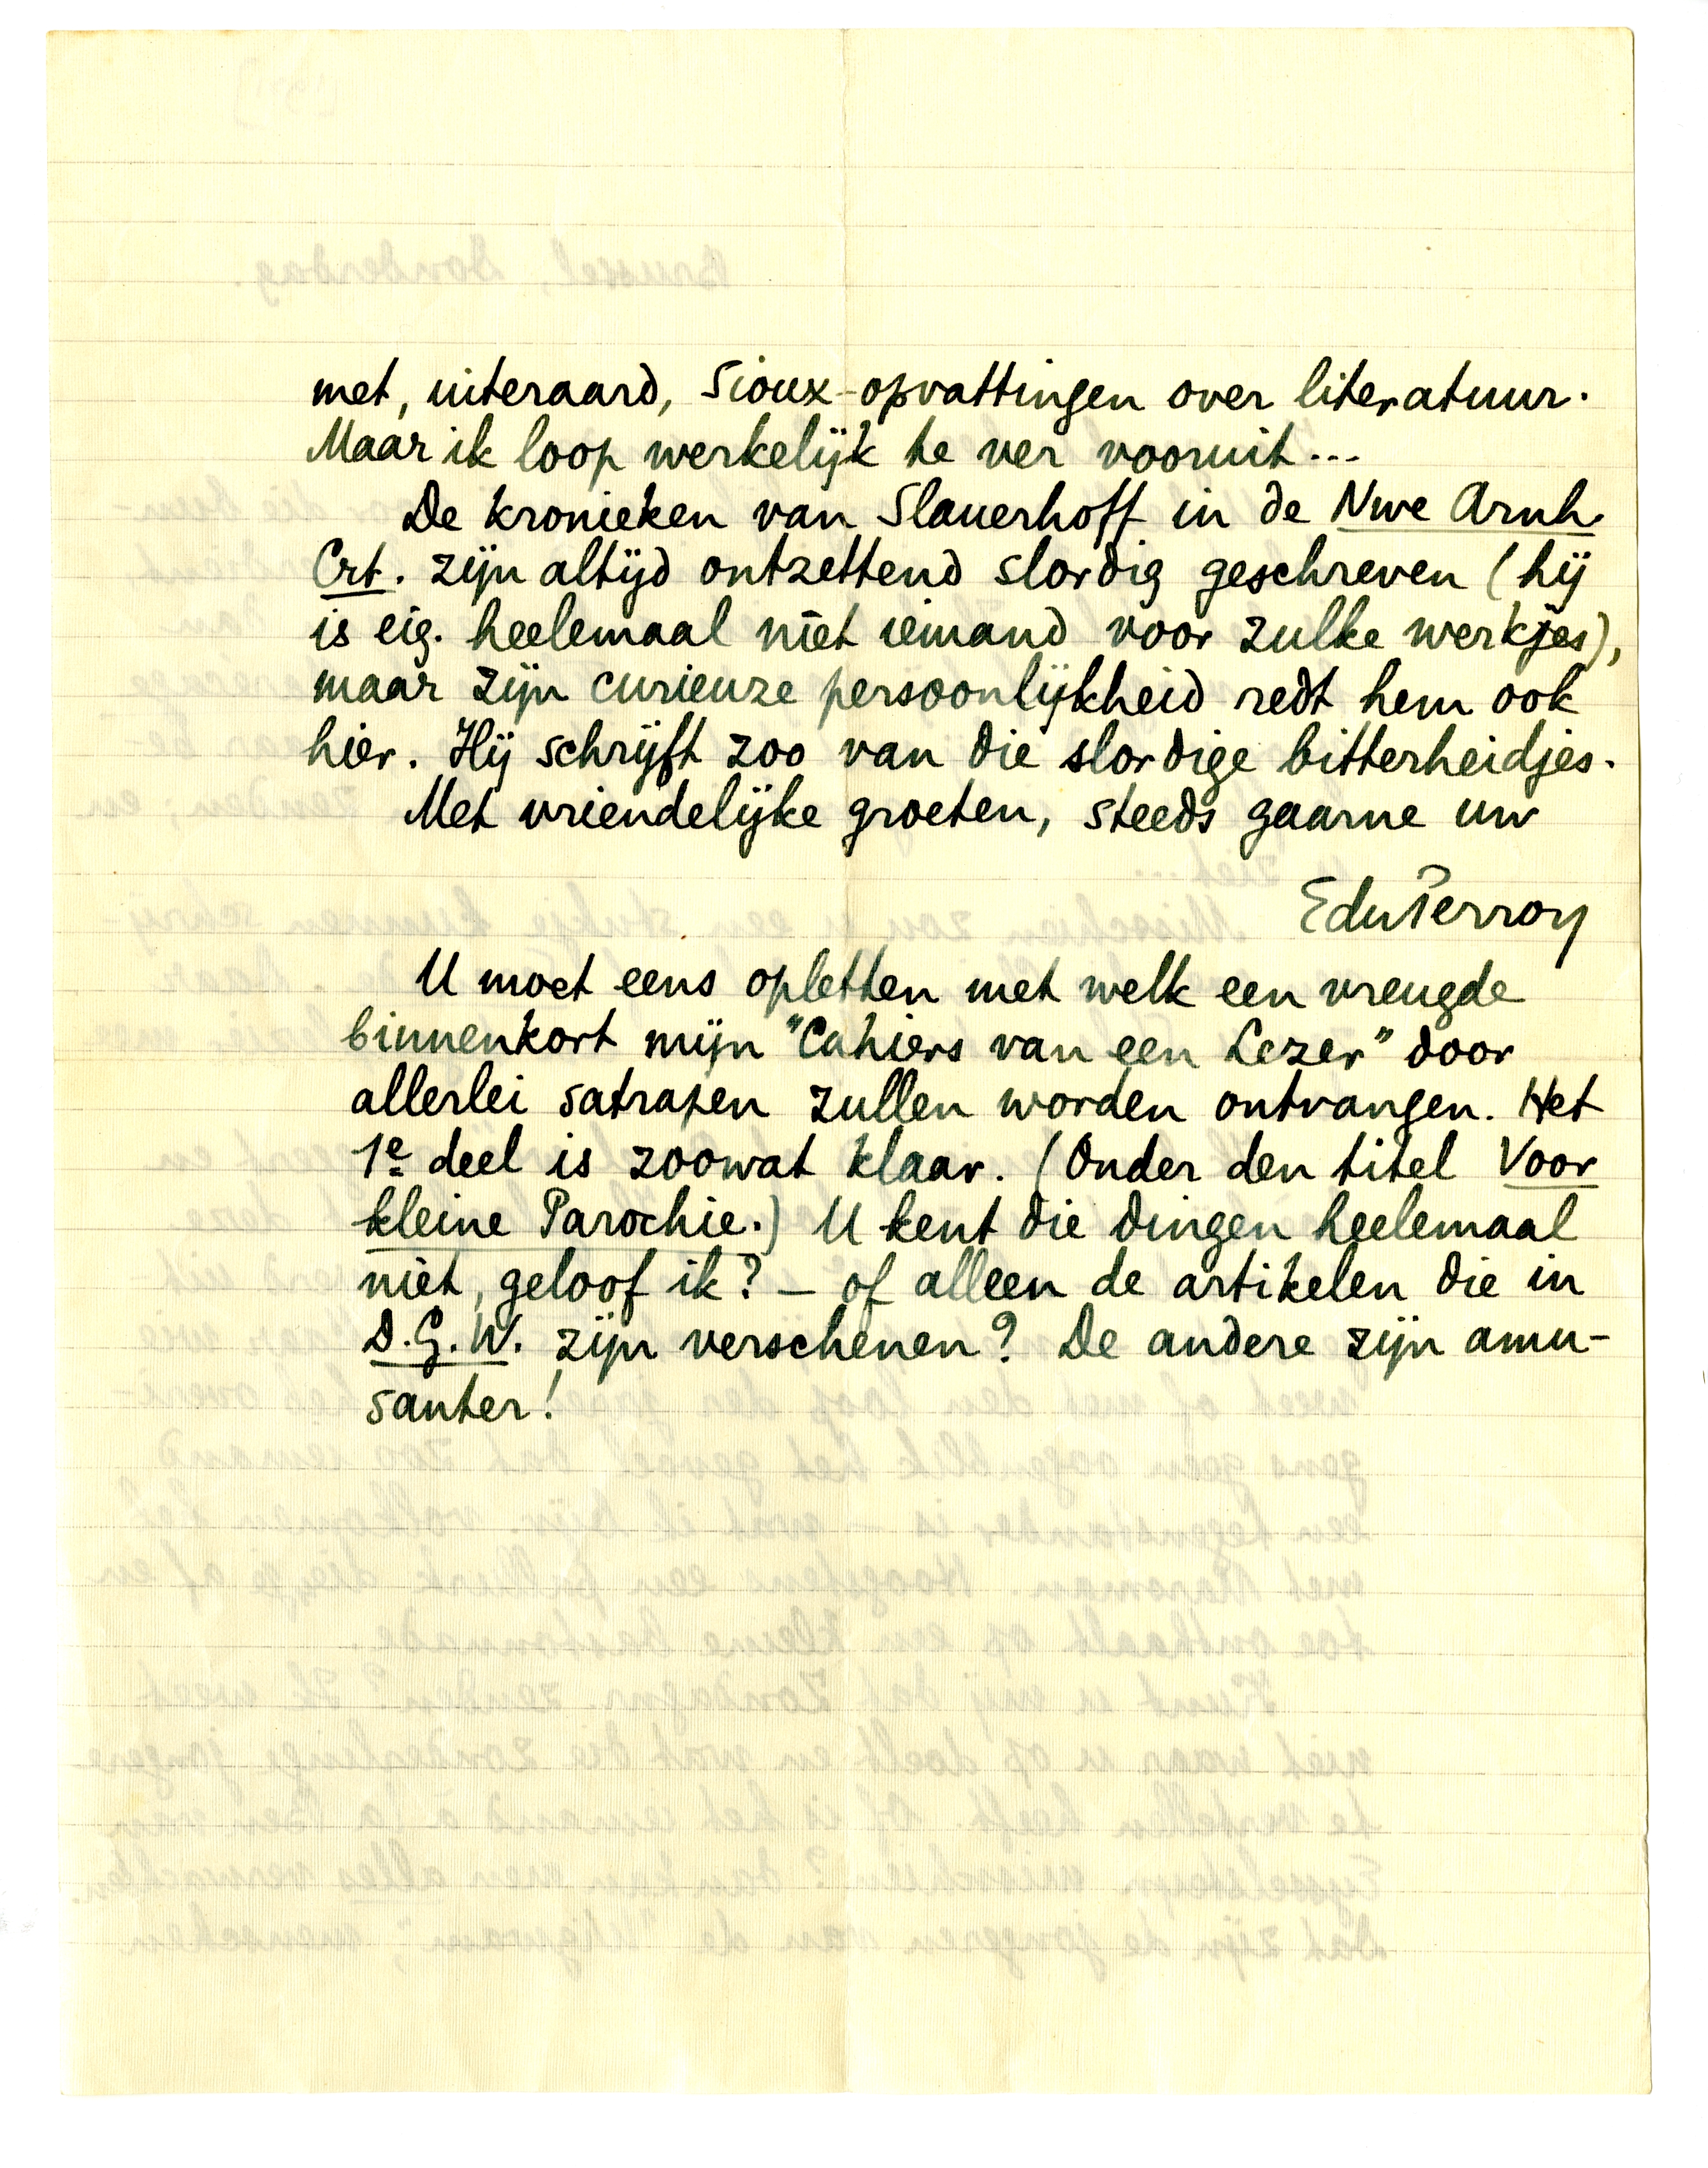 met, uiteraard, Sioux-opvattingen over literatuur.
Maar ik loop werkelijk te ver vooruit...
De kronieken van Slauerhoff in de Nwe Arnh.
Crt. zijn altijd ontzettend slordig geschreven (hij
is eig. heelemaal niet iemand voor zulke werkjes),
maar zijn curieuze persoonlijkheid redt hem ook
hier. Hij schrijft zoo van die slordige bitterheidjes.
Met vriendelijke groeten, steeds gaarne uw
EduPerron
U moet eens opletten met welk een vreugde
binnenkort mijn "Cahiers van een Lezer" door
allerlei satrapen zullen worden ontvangen. Het
1e deel is zoowat klaar. (Onder den titel Voor
kleine Parochie.) U kent die dingen heelemaal
niet, geloof ik? – of alleen de artikelen die in
D.G.W. zijn verschenen? De andere zijn amu-
santer!